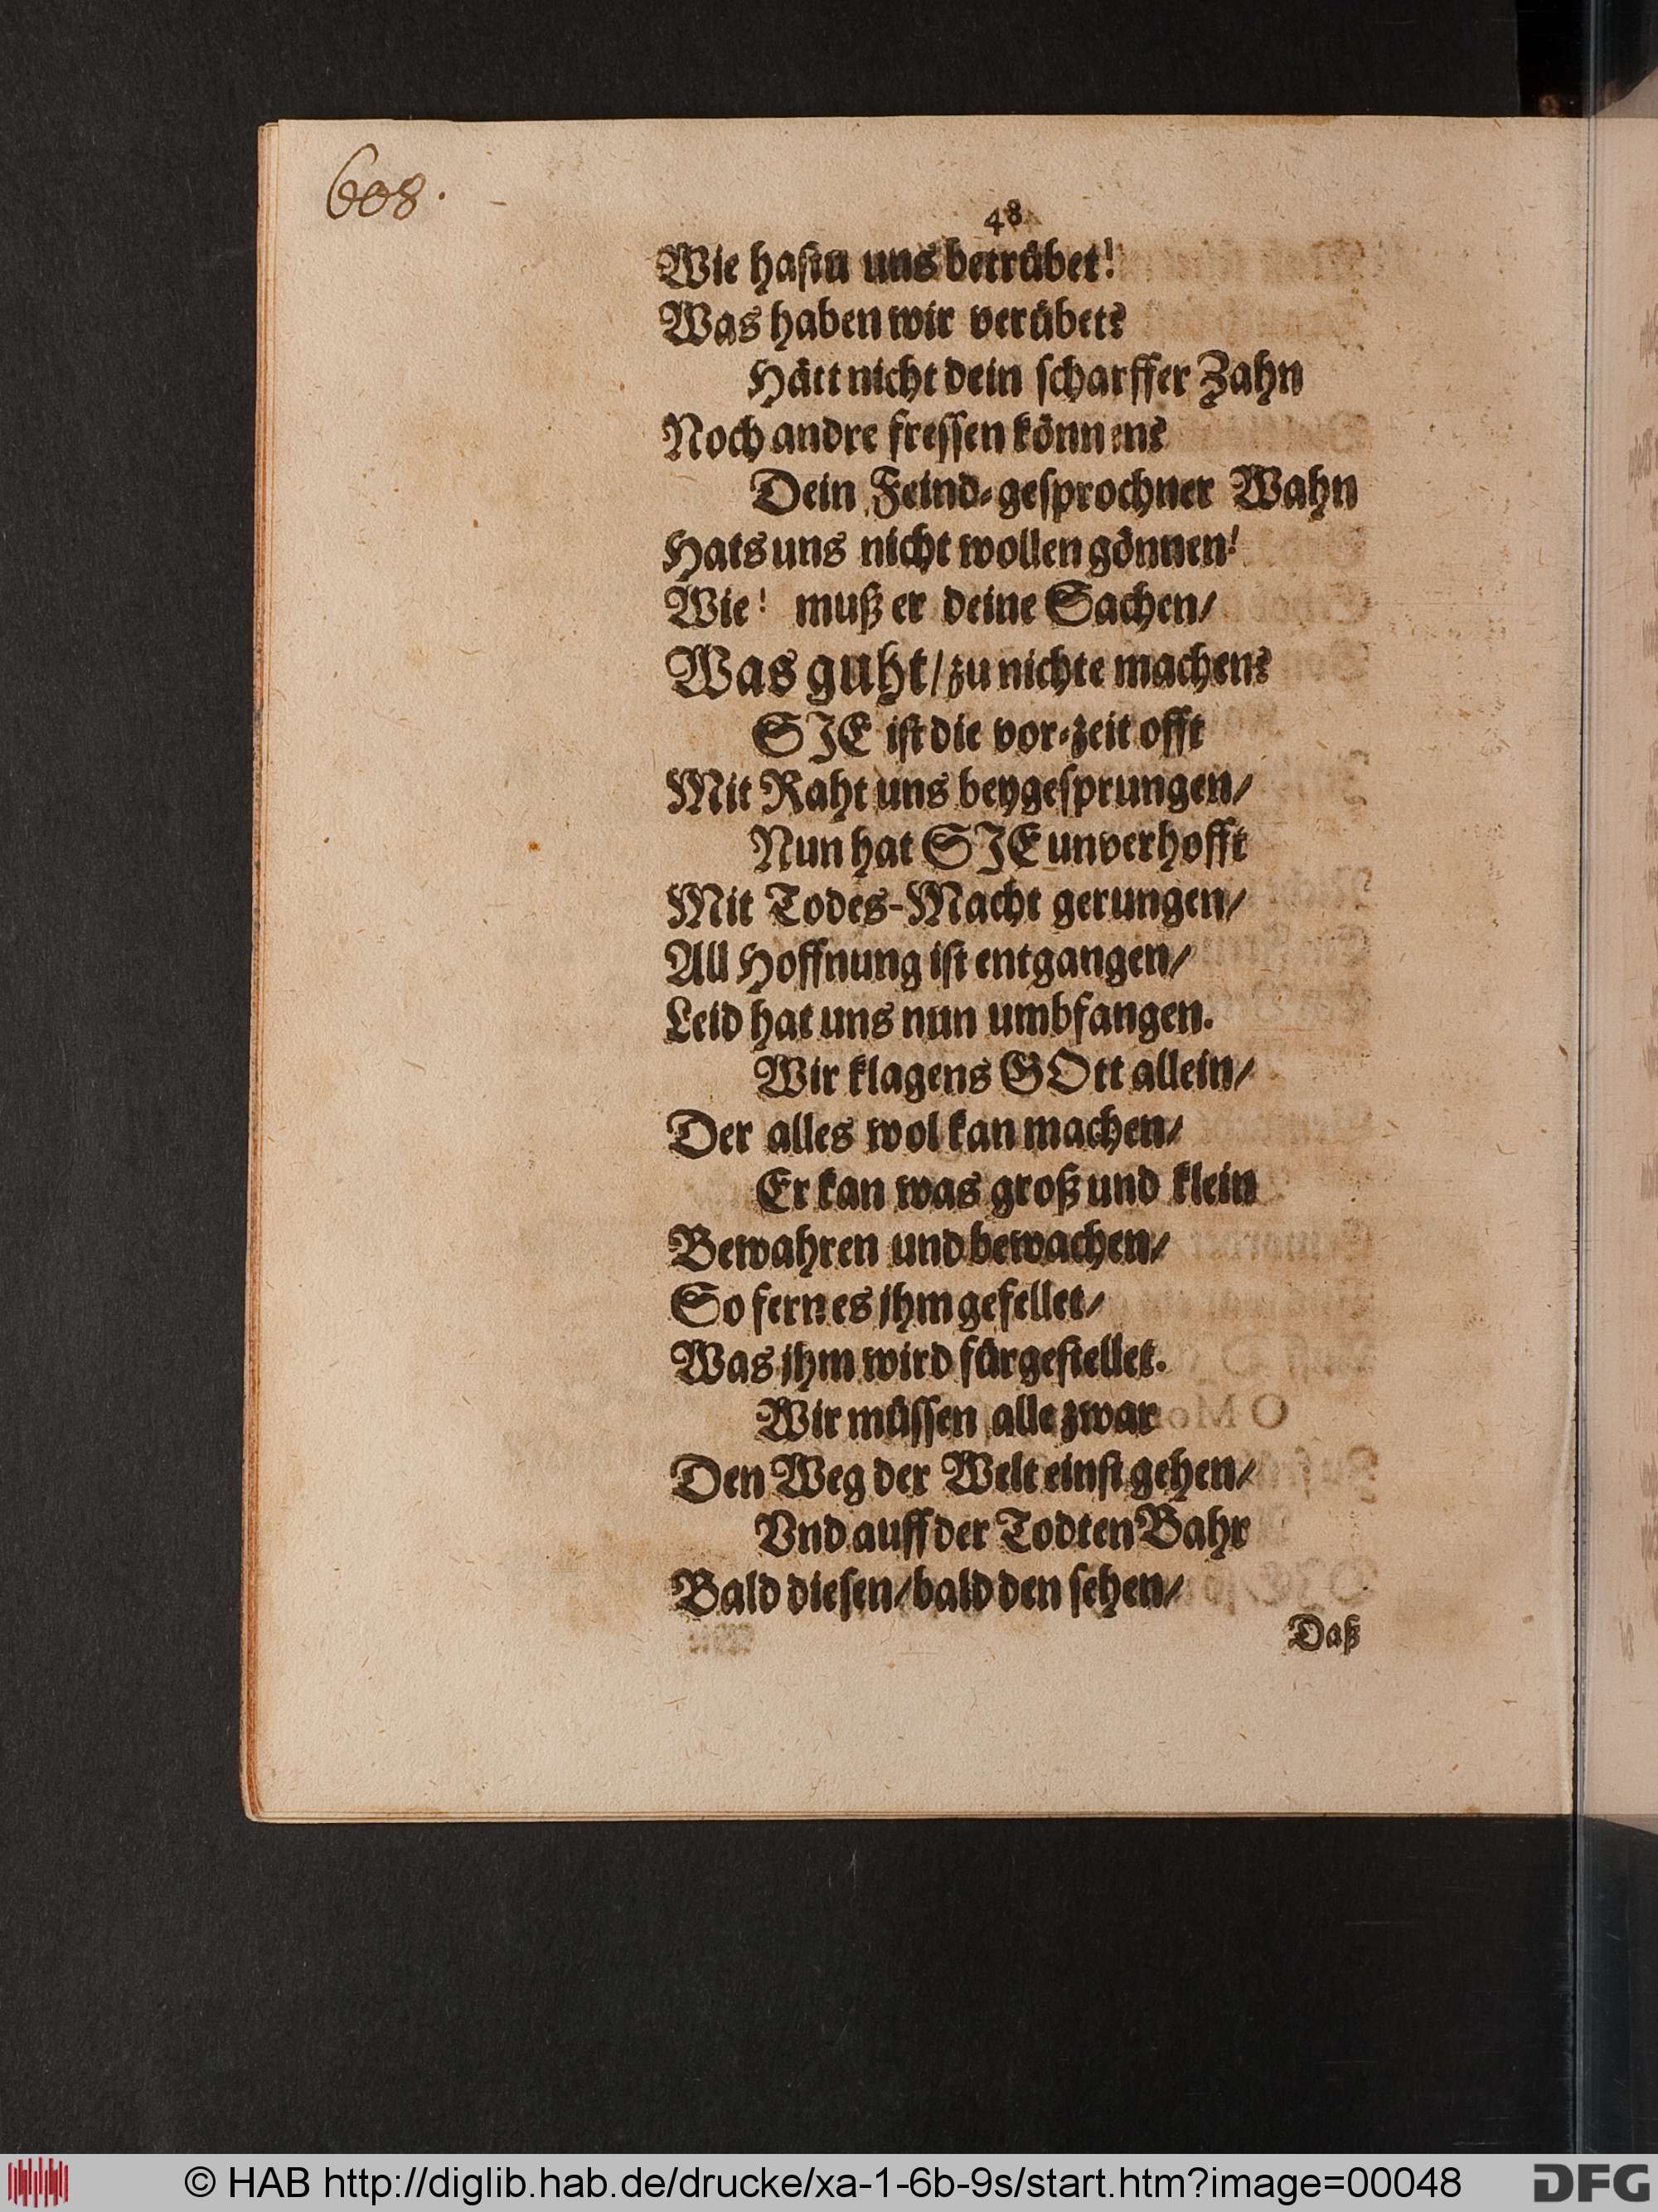 608.
48
Wie hastu uns betrübet!
Was haben wir verübet?
Hätt nicht dein scharffer Zahn
Noch andre fressen können?
Dein Feind-gesprochner Wahn
Hats uns nicht wollen gönnen!
Wie! muß er deine Sachen/
Was guht/zu nichte machen?
SIE ist die vor-zeit offt
Mit Raht uns beygesprungen/
Nun hat SIE unverhofft
Mit Todes-Macht gerungen/
All Hoffnung ist entgangen/
Leid hat uns nun umbfangen.
Wir klagens GOtt allein/
Der alles wol kan machen/
Er kan was groß und klein
Bewahren und bewachen/
So fern es ihm gefellet/
Was ihm wird fürgestellet.
Wir müssen alle zwar
Den Weg der Welt einst gehen/
Vnd auff der Todten Bahr
Bald diesen/bald den sehen/
Daß
© HAB http://diglib.hab.de/drucke/xa-1-6b-9s/start.htm?image=00048
DFG